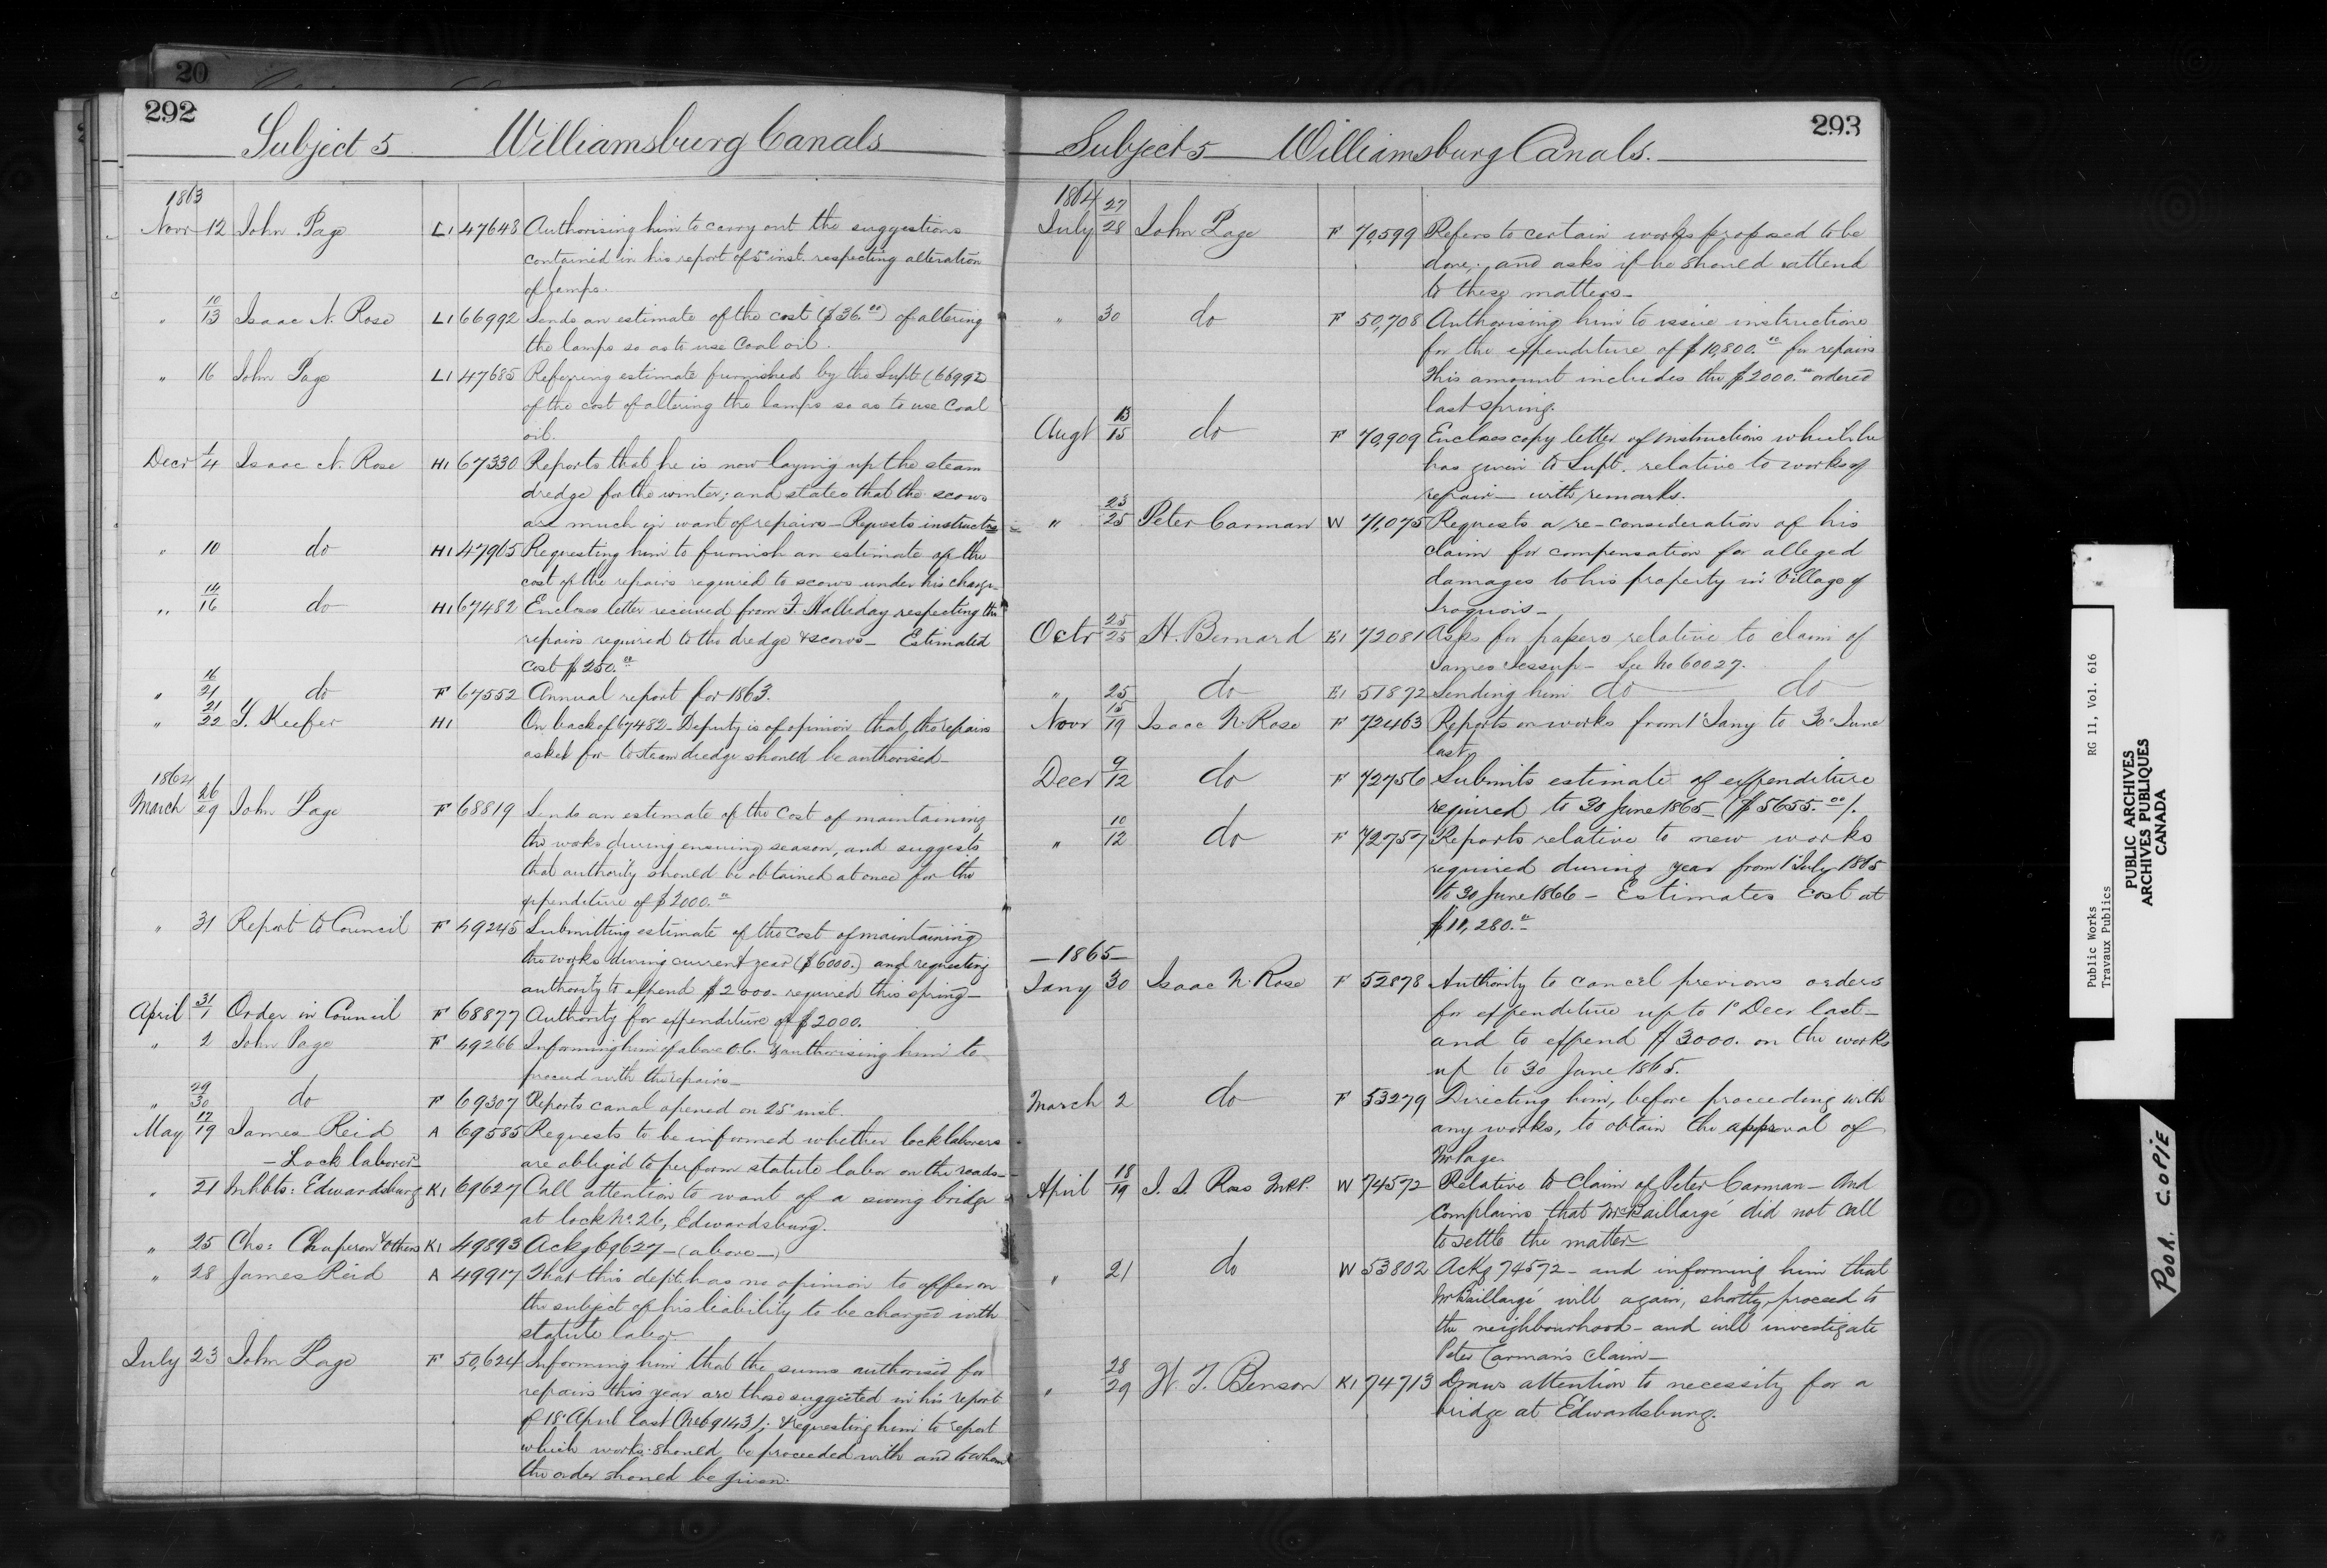 20
292
Subject 5 Williamsburg Canals
1863
Novr 12 John Page L1 47648 Authorising him to carry out the suggestions
contained in his report of 5th inst. respecting alteration
of lamps.
" 10/13 Isaac N. Rose L1 66992 Sends an estimate of the cost ($36.00) of altering
the lamps so as to use Coal oil.
" 16 John Page L1 47685 Referring estimate furnished by the Supt. (66992)
of the cost of altering the lamps so as to use Coal
oil.
Decr 1/4 Isaac N. Rose H1 67330 Reports that he is now laying up the steam
dredge for the winter; and states that the scows
are much in want of repairs – Requests instructns
" 10 do H1 47965 Requesting him to furnish an estimate of the
cost of the repairs required to scows under his charge
" 14/16 do H1 67482 Encloses letter received from F. Halliday respecting the
repairs required to the dredge & scows – Estimated
Cost $250.00
" 16/21 do F 67552 Annual report for 1863.
" 21/22 T. Keefer H1 On back of 67482 – Deputy is of opinion that the repairs
asked for to steam dredge should be authorised –
1864
March 26/29 John Page F 68819 Sends an estimate of the cost of maintaining
the works during ensuing season, and suggests
that authority should be obtained at once for the
expenditure of $2000.00
" 31 Report to Council F 49245 Submitting estimate of the cost of maintaining
the works during current year ($6000.) and requesting
authority to expend $2000 – required this spring –
April 31/1 Order in Council F 68877 Authority for expenditure of $2000.
" 2 John Page F 49266 Informing him of above O.C. & authorising him to
proceed with the repairs –
" 29/30 do F 69307 Reports canal opened on 25th inst.
May 17/19 James Reid A 69585 Requests to be informed whether lock laborers
– Lock laborer – are obliged to perform statute labor on the roads –
" 21 Inhbts: Edwardsburg K1 69627 Call attention to want of a swing bridge
at lock No. 26, Edwardsburg.
" 25 Chs: Chaperon & others K1 49893 Ackg 69627 – (above –)
" 28 James Reid A 49917 That this dept. has no opinion to offer on
the subject of his liability to be charged with
statute labor
July 23 John Page F 50,624 Informing him that the sums authorised for
repairs this year are those suggested in his report
of 18th April last (No 69143); & requesting him to report
which works should be proceeded with and to whom
the order should be given.
293
Subject 5 Williamsburg Canals.
1864
July 27/28 John Page F 70,599 Refers to certain works proposed to be
done; and asks if he should attend
to these matters –
" 30 do F 50,708 Authorising him to issue instructions
for the expenditure of $10,800.00 for repairs
This amount includes the $2000.00 ordered
last spring.
Augt 13/15 do F 70,909 Encloses copy letter of instructions which he
has given to Supt. relative to works of
repair – with remarks.
" 23/25 Peter Carman W 71,075 Requests a re-consideration of his
claim for compensation for alleged
damages to his property in Village of
Iroquois –
Octr 25/25 H. Bernard E1 72081 Asks for papers relative to claim of
James Jessup – See No 60027.
" 25 do E1 51872 Sending him do do
Novr 15/19 Isaac N. Rose F 72463 Reports on works from 1st Jany to 30th June
last.
Decr 9/12 do F 72756 Submits estimate of expenditure
required to 30 June 1865 – ($5655.00).
" 10/12 do F 72757 Reports relative to new works
required during year from 1st July 1865
to 30 June 1866 – Estimates Cost at
$11,280.00
– 1865 –
Jany 30 Isaac N. Rose F 52878 Authority to cancel previous orders
for expenditure up to 1st Decr last –
and to expend $3000. on the works
up to 30 June 1865.
March 2 do F 53279 Directing him, before proceeding with
any works, to obtain the approval of
Mr Page.
April 18/19 J. S. Ross M.P.P. W 74572 Relative to Claim of Peter Carman – and
complains that Mr Baillargé did not call
to settle the matter –
" 21 do W 53802 Ackg 74572 – and informing him that
Mr Baillargé will again, shortly, proceed to
the neighbourhood – and will investigate
Peter Carman's Claim –
" 28/29 W. T. Benson K1 74713 Draws attention to necessity for a
bridge at Edwardsburg.
Public Works RG 11, Vol. 616
Travaux Publics
PUBLIC ARCHIVES
ARCHIVES PUBLIQUES
CANADA
POOR COPIE